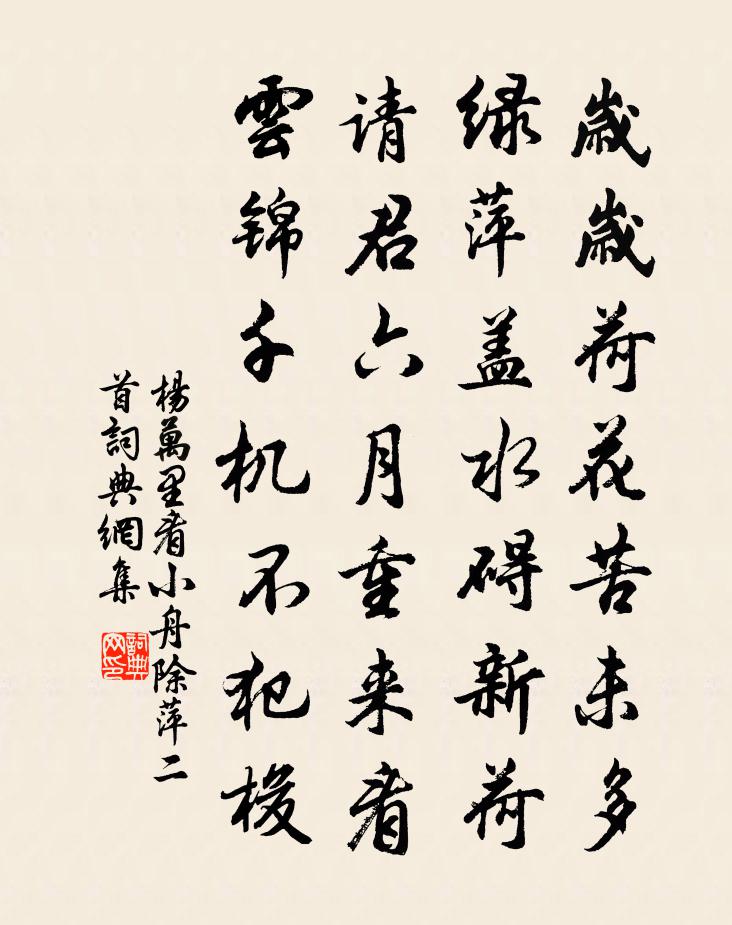 歲歲荷花苦未多
绿萍盖水碍新荷
请君六月重来看
雲锦千机不犯梭
楊萬里看小舟除萍二
首詞典網集
詞典
网印